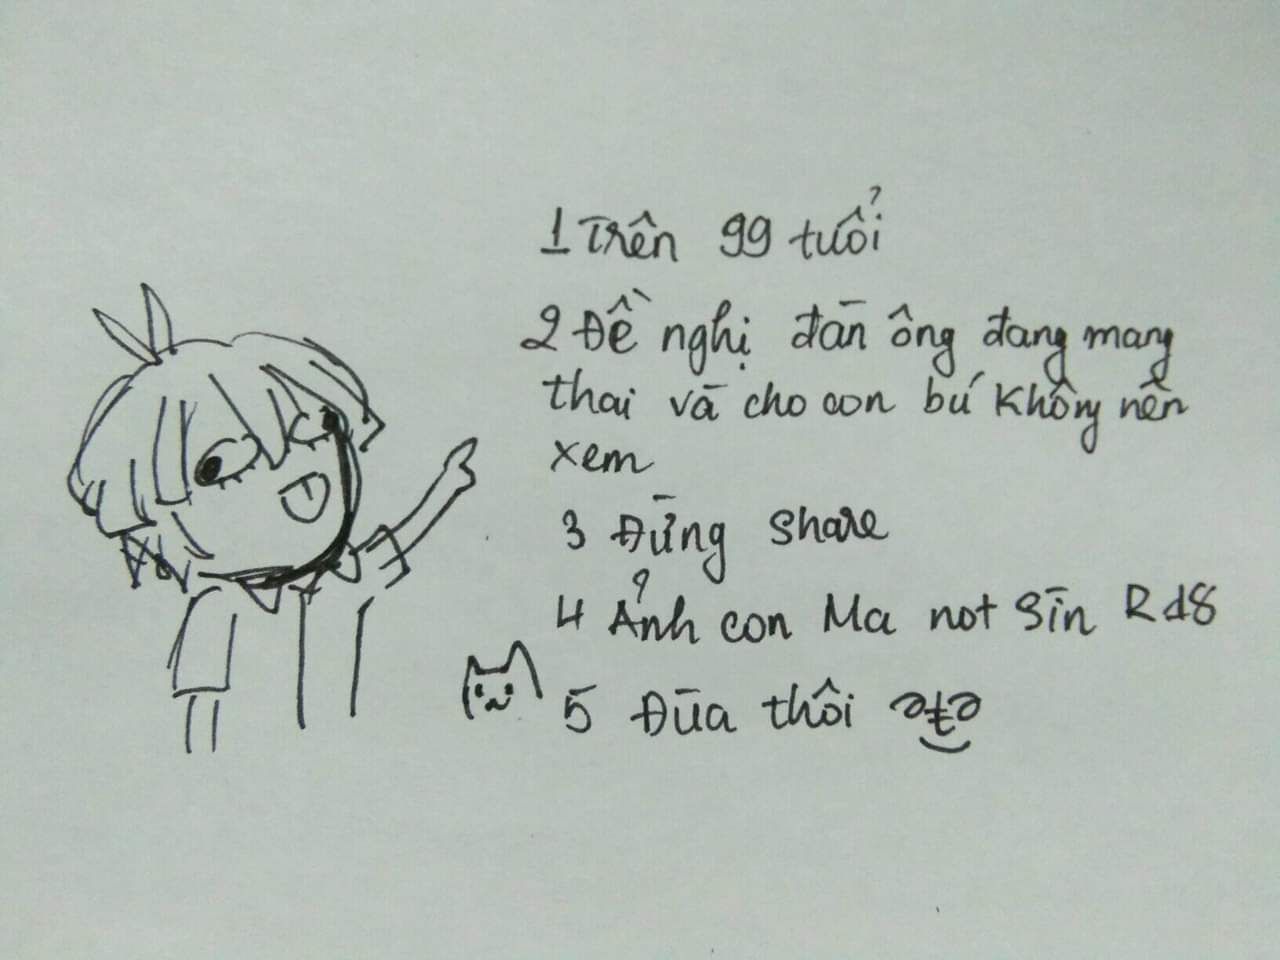 1 Trên 99 tuổi
2 Đề nghị đàn ông đang mang
thai và cho con bú không nên
xem
3 Đừng share
4 Ảnh con Ma not Sìn Rd8
5 Đùa thôi